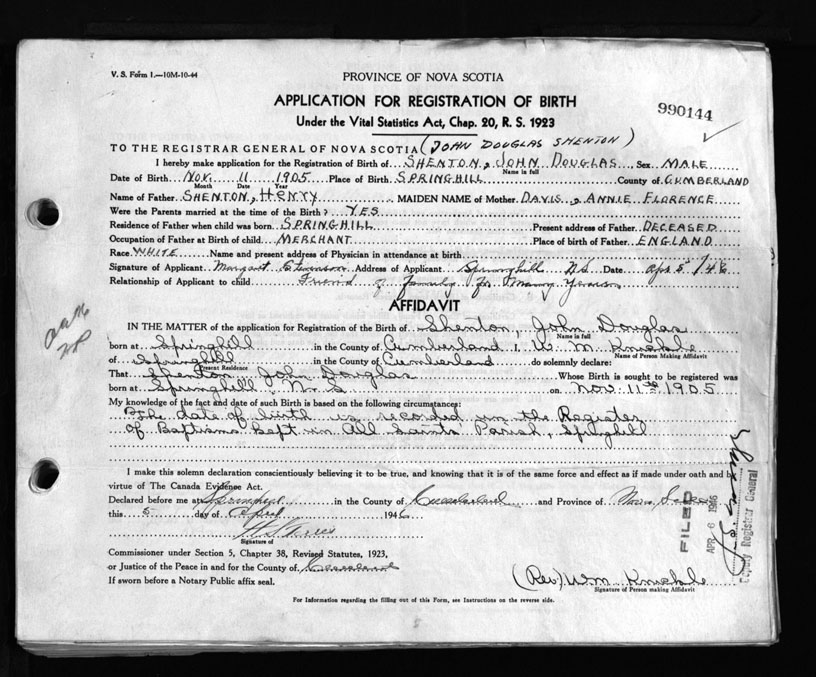 V. S. Form 1.—10M-10-44
PROVINCE OF NOVA SCOTIA
APPLICATION FOR REGISTRATION OF BIRTH
Under the Vital Statistics Act, Chap. 20, R. S. 1923
990144
TO THE REGISTRAR GENERAL OF NOVA SCOTIA (JOHN DOUGLAS SHENTON)
I hereby make application for the Registration of Birth of SHENTON, JOHN DOUGLAS, Sex MALE
Name in full
Date of Birth NOV. 11 1905 Place of Birth SPRINGHILL County of CUMBERLAND
Month Date Year
Name of Father SHENTON, HENRY MAIDEN NAME of Mother DAVIS, ANNIE FLORENCE
Were the Parents married at the time of the Birth? YES
Residence of Father when child was born SPRINGHILL Present address of Father DECEASED
Occupation of Father at Birth of child MERCHANT Place of birth of Father ENGLAND
Race WHITE Name and present address of Physician in attendance at birth
Signature of Applicant Margaret Address of Applicant Springhill NS Date Apr 5/46
Relationship of Applicant to child Friend of family for many years
AFFIDAVIT
IN THE MATTER of the application for Registration of the Birth of Shenton, John Douglas
Name in full
born at Springhill in the County of Cumberland I, W. M.
Name of Person Making Affidavit
of Springhill in the County of Cumberland do solemnly declare:
Present Residence
That Shenton John Douglas Whose Birth is sought to be registered was
born at Springhill, N. S on Nov. 11th 1905
My knowledge of the fact and date of such Birth is based on the following circumstances:
The date of birth is recorded in the Register
of Baptisms kept in All Saints' Parish, Springhill
I make this solemn declaration conscientiously believing it to be true, and knowing that it is of the same force and effect as if made under oath and by
virtue of The Canada Evidence Act.
Declared before me at Springhill in the County of Cumberland and Province of Nova Scotia
this 5 day of April 1946
Signature of
Commissioner under Section 5, Chapter 38, Revised Statutes, 1923,
or Justice of the Peace in and for the County of Cumberland
If sworn before a Notary Public affix seal.
(Rev) Wm
Signature of Person making Affidavit
For Information regarding the filling out of this Form, see Instructions on the reverse side.
FILED
APR 6 1946
Deputy Registrar General